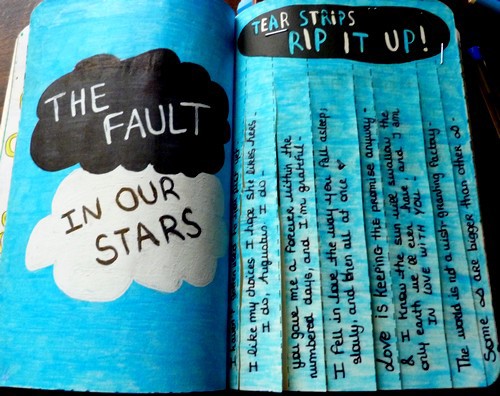 THE
FAULT
IN OUR
STARS
TEAR STRIPS
RIP IT UP!
I like my choices I hope she likes hers.
I do, Augustus. I do -
you gave me a forever within the
numbered days, and I'm grateful -
I fell in love the way you fall asleep;
slowly, and then all at once
Love is keeping the promise anyway -
& I know the sun will swallow the
only earth we'll ever have, and I am
IN LOVE WITH YOU.
The world is not a wish granting factory -
Some ∞ are bigger than other ∞.